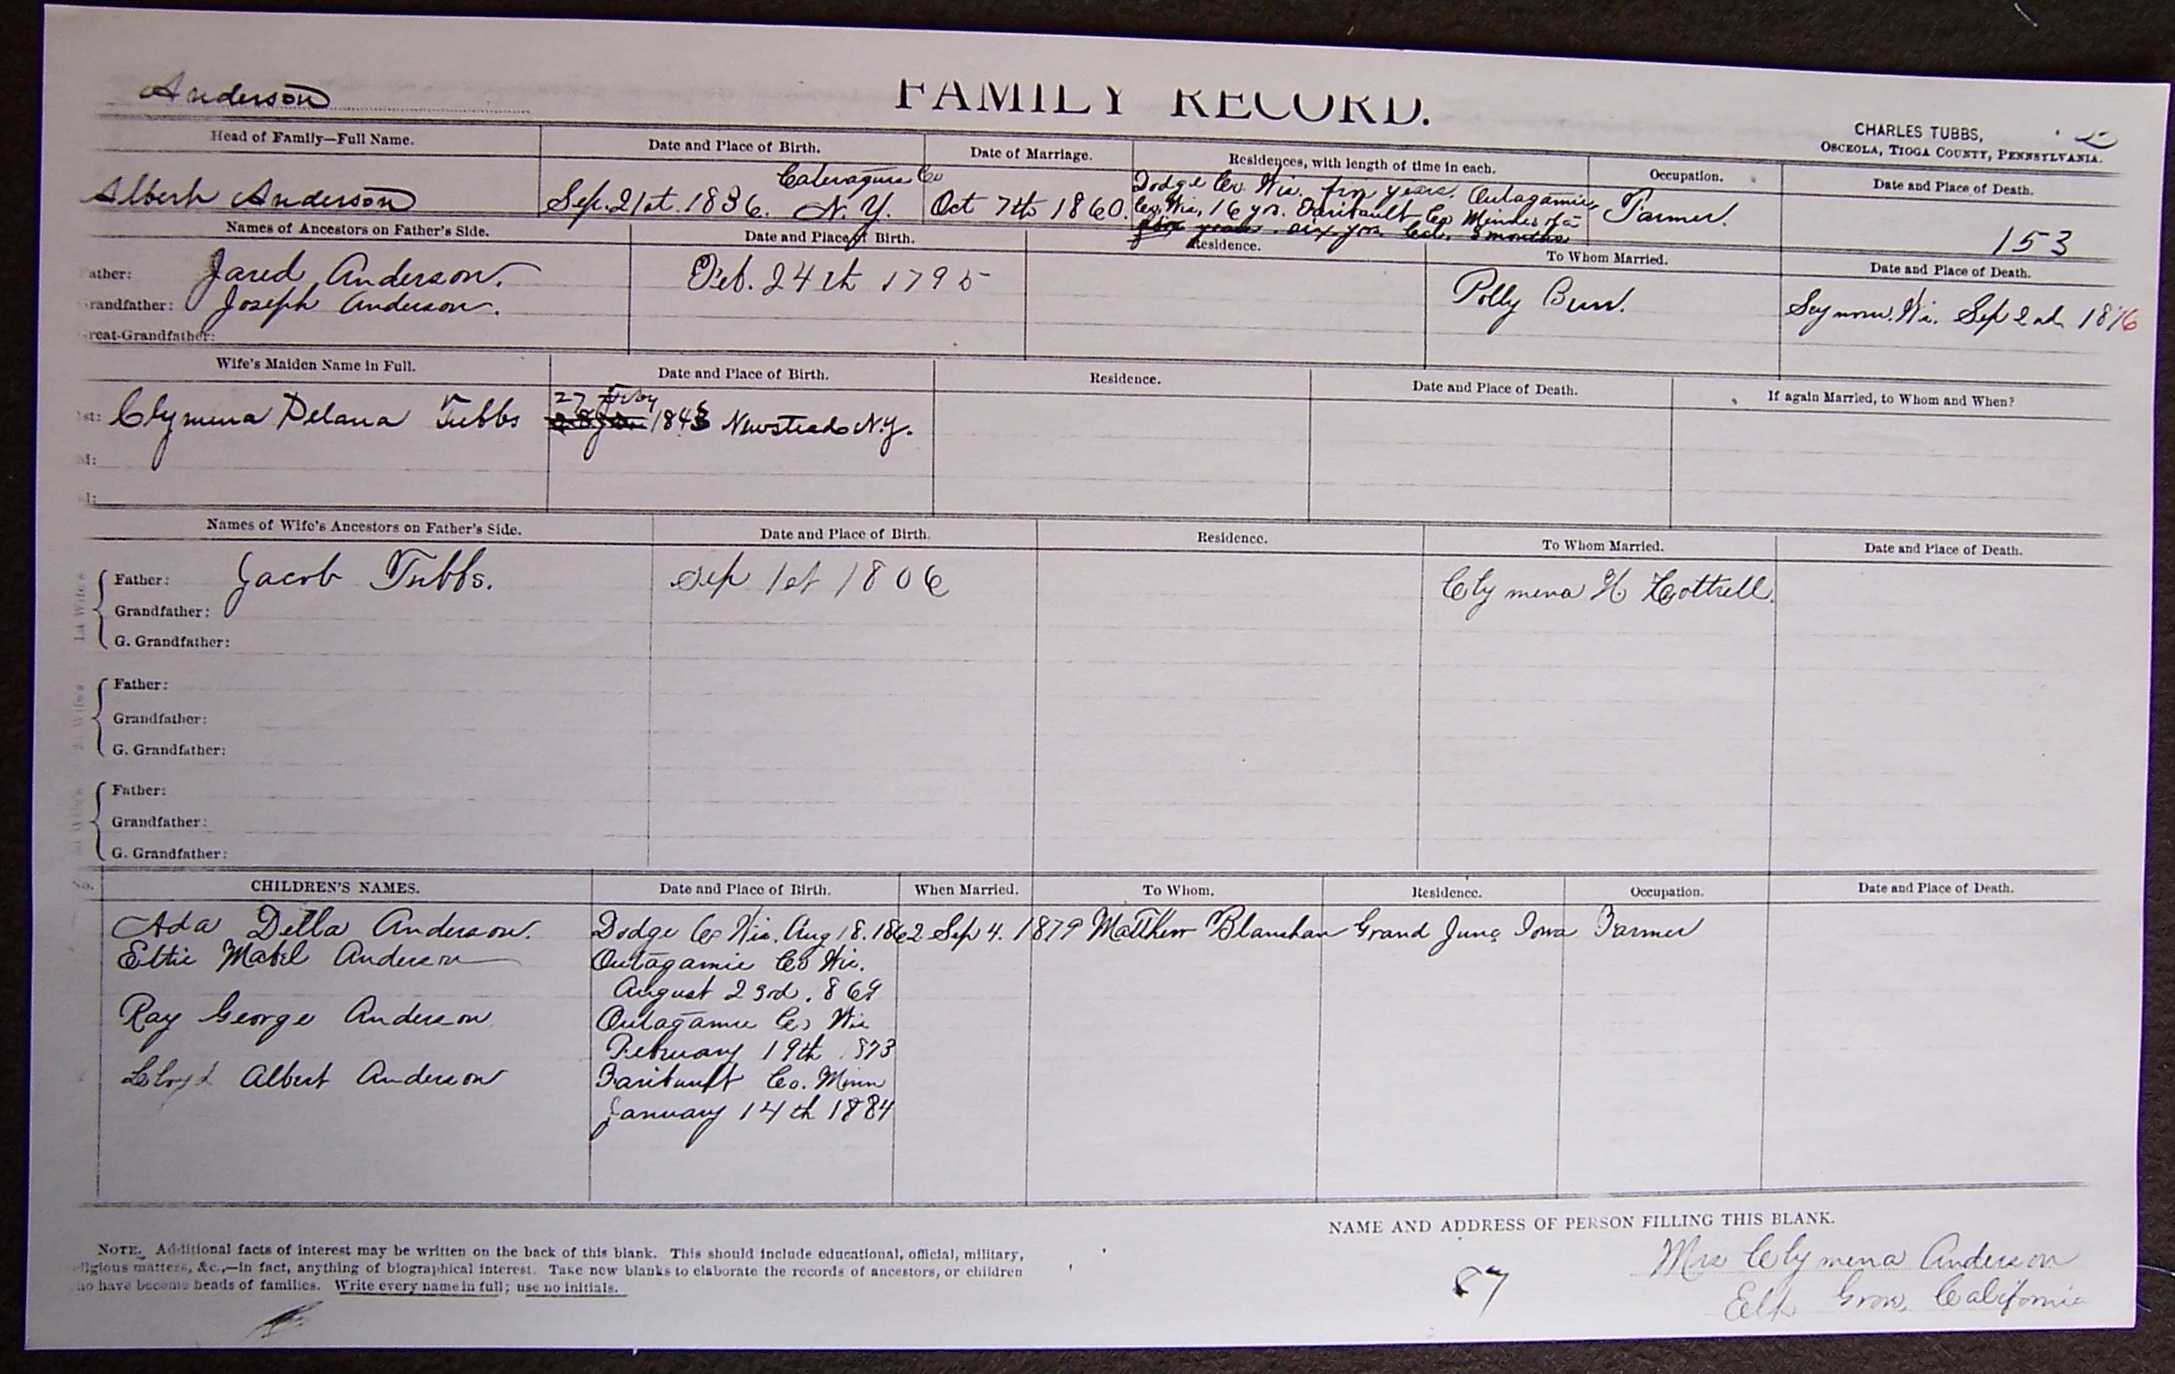 Anderson
FAMILY RECORD.
CHARLES TUBBS,
OSCEOLA, TIOGA COUNTY, PENNSYLVANIA.
Head of Family—Full Name. Date and Place of Birth. Date of Marriage. Residences, with length of time in each. Occupation. Date and Place of Death.
Albert Anderson Sep. 21st. 1836. Cateragus Co N.Y. Oct 7th 1860. Dodge Co Wis. five years. Outagamie Farmer.
Co, Wis, 16 yrs. Faribault Co Minn
years. six yrs Cal. 3 months
153
Names of Ancestors on Father's Side. Date and Place of Birth. Residence. To Whom Married. Date and Place of Death.
ather: Jared Anderson. Feb. 24th 1795 Polly Burr. Seymour. Wi. Sep 2nd 1876
randfather: Joseph Anderson.
reat-Grandfather:
Wife's Maiden Name in Full. Date and Place of Birth. Residence. Date and Place of Death. If again Married, to Whom and When?
1st: Clymena Delana Tubbs 27 Newstead N.Y.
d:
d:
Names of Wife's Ancestors on Father's Side. Date and Place of Birth. Residence. To Whom Married. Date and Place of Death.
Father: Jacob Tubbs. Sep 1st 1806 Clymena H Cottrell.
Grandfather:
G. Grandfather:
Father:
Grandfather:
G. Grandfather:
Father:
Grandfather:
G. Grandfather:
No. CHILDREN'S NAMES. Date and Place of Birth. When Married. To Whom. Residence. Occupation. Date and Place of Death.
Ada Della Anderson. Dodge Co Wis. Aug 18. 1862 Sep 4. 1879 Matthew Blanshan Grand Junc Iowa Farmer
Ettie Mabel Anderson Outagamie Co Wis.
August 23rd. 869
Ray George Anderson Outagamie Co Wis
February 19th 1873
Lloyd Albert Anderson Faribault Co. Minn
January 14th 1884
NAME AND ADDRESS OF PERSON FILLING THIS BLANK.
NOTE. Additional facts of interest may be written on the back of this blank. This should include educational, official, military,
eligious matters, &c.,—in fact, anything of biographical interest. Take new blanks to elaborate the records of ancestors, or children
ho have become heads of families. Write every name in full; use no initials.
87
Mrs Clymena Anderson
Elk Grove, California